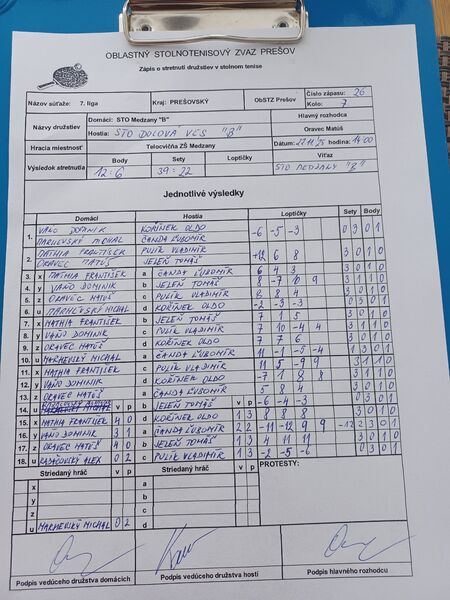 OBLASTNÝ STOLNOTENISOVÝ ZVÄZ PREŠOV
Zápis o stretnutí družstiev v stolnom tenise
Názov súťaže: 7. liga Kraj: PREŠOVSKÝ ObSTZ Prešov Číslo zápasu: 26
Kolo: 7
Názvy družstiev Domáci: STO Medzany "B" Hlavný rozhodca
Hostia: STO DOLOVA VES "B" Oravec Matúš
Hracia miestnosť Telocvičňa ZŠ Medzany Dátum: 22.11.25 hodina: 14:00
Výsledok stretnutia Body Sety Loptičky Víťaz
12:6 39:22 STO MEDZANY "B"
Jednotlivé výsledky
Domáci Hostia Loptičky Sety Body
1. VAŇO DOMINIK KOŘÍNEK OLDO -6 -5 -3 0 3 0 1
MARHEVSKÝ MICHAL ČANDA ĽUBOMÍR
2. MATHIA FRANTIŠEK PULÍK VLADIMÍR +12 6 8 3 0 1 0
ORAVEC MATÚŠ JELEŇ TOMÁŠ
3. x MATHIA FRANTIŠEK a ČANDA ĽUBOMÍR 6 4 3 3 0 1 0
4. y VAŇO DOMINIK b JELEŇ TOMÁŠ 8 -7 10 9 3 1 1 0
5. z ORAVEC MATÚŠ c PULÍK VLADIMÍR 8 8 4 3 0 1 0
6. u MARHEVSKÝ MICHAL d KOŘÍNEK OLDO -2 -3 -3 0 3 0 1
7. x MATHIA FRANTIŠEK b JELEŇ TOMÁŠ 7 1 5 3 0 1 0
8. y VAŇO DOMINIK c PULÍK VLADIMÍR 7 10 -4 4 3 1 1 0
9. z ORAVEC MATÚŠ d KOŘÍNEK OLDO 7 7 6 3 0 1 0
10. u MARHEVSKÝ MICHAL a ČANDA ĽUBOMÍR 11 -1 -5 -4 1 3 0 1
11. x MATHIA FRANTIŠEK c PULÍK VLADIMÍR 11 5 -9 9 3 1 1 0
12. y VAŇO DOMINIK d KOŘÍNEK OLDO -7 1 8 8 3 1 1 0
13. z ORAVEC MATÚŠ a ČANDA ĽUBOMÍR 5 8 4 3 0 1 0
14. u v p b JELEŇ TOMÁŠ v p -6 -4 -3 0 3 0 1
15. x MATHIA FRANTIŠEK 4 0 d KOŘÍNEK OLDO 1 3 8 8 8 3 0 1 0
16. y VAŇO DOMINIK 3 1 a ČANDA ĽUBOMÍR 2 2 -11 -12 9 9 -12 2 3 0 1
17. z ORAVEC MATÚŠ 4 0 b JELEŇ TOMÁŠ 1 3 4 11 11 3 0 1 0
18. u RADAČOVSKÝ ALEX 0 2 c PULÍK VLADIMÍR 1 3 -2 -5 -6 0 3 0 1
Striedaný hráč v p Striedaný hráč v p PROTESTY:
x a
y b
z c
u MARHEVSKÝ MICHAL 0 2 d
Podpis vedúceho družstva domácich Podpis vedúceho družstva hostí Podpis hlavného rozhodcu